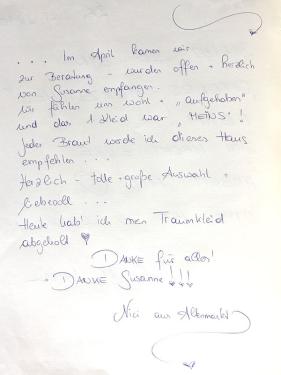 ... Im April kamen wir
zur Beratung - wurden offen + herzlich
von Susanne empfangen.
Wir fühlen uns wohl + „aufgehoben"
und das 1. Kleid war „MEINS"!
Jeder Braut werde ich dieses Haus
empfehlen ...
Herzlich - tolle + große Auswahl +
liebevoll ...
Heute hab' ich mein Traumkleid
abgeholt ♥
DANKE für alles!
DANKE Susanne!!!
Nici aus Altenmarkt